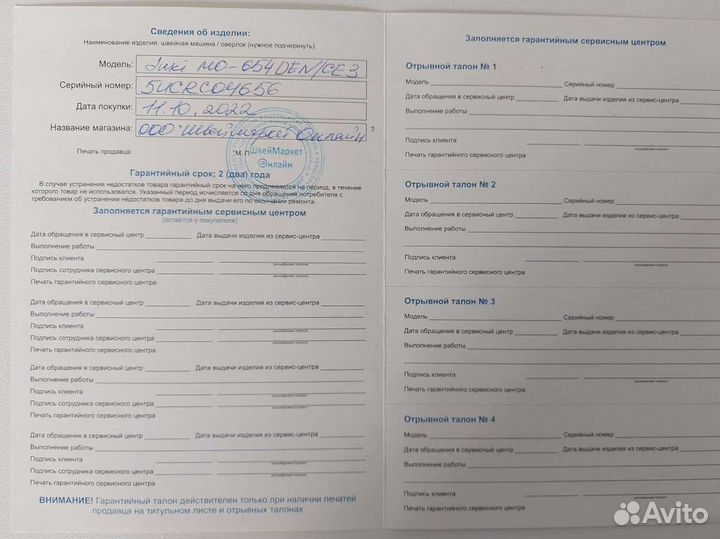 Сведения об изделии:
Наименование изделия: швейная машина / оверлок (нужное подчеркнуть).
Модель: Juki MO-654DEN/CE3
Серийный номер:
Дата покупки: 11.10.2022
Название магазина: ООО "ШвейМаркет Онлайн"
Печать продавца: М.П.
ШвейМаркет
Онлайн
Гарантийный срок: 2 (два) года
В случае устранения недостатков товара гарантийный срок на него продлевается на период, в течение
которого товар не использовался. Указанный период исчисляется со дня обращения потребителя с
требованием об устранении недостатков товара до дня выдачи его по окончании ремонта.
Заполняется гарантийным сервисным центром
(остаётся у покупателя)
Дата обращения в сервисный центр Дата выдачи изделия из сервис-центра
Выполнение работы
Подпись клиента
расшифровка подписи
Подпись сотрудника сервисного центра
Печать гарантийного сервисного центра
Дата обращения в сервисный центр Дата выдачи изделия из сервис-центра
Выполнение работы
Подпись клиента
расшифровка подписи
Подпись сотрудника сервисного центра
Печать гарантийного сервисного центра
Дата обращения в сервисный центр Дата выдачи изделия из сервис-центра
Выполнение работы
Подпись клиента
расшифровка подписи
Подпись сотрудника сервисного центра
Печать гарантийного сервисного центра
Дата обращения в сервисный центр Дата выдачи изделия из сервис-центра
Выполнение работы
Подпись клиента
расшифровка подписи
Подпись сотрудника сервисного центра
Печать гарантийного сервисного центра
ВНИМАНИЕ! Гарантийный талон действителен только при наличии печатей
продавца на титульном листе и отрывных талонах
Заполняется гарантийным сервисным центром
Отрывной талон № 1
Модель Серийный номер
Дата обращения в сервисный центр Дата выдачи изделия из сервис-центра
Выполнение работы
Подпись клиента
расшифровка подписи
Печать гарантийного сервисного центра
Отрывной талон № 2
Модель Серийный номер
Дата обращения в сервисный центр Дата выдачи изделия из сервис-центра
Выполнение работы
Подпись клиента
расшифровка подписи
Печать гарантийного сервисного центра
Отрывной талон № 3
Модель Серийный номер
Дата обращения в сервисный центр Дата выдачи изделия из сервис-центра
Выполнение работы
Подпись клиента
расшифровка подписи
Печать гарантийного сервисного центра
Отрывной талон № 4
Модель Серийный номер
Дата обращения в сервисный центр Дата выдачи изделия из сервис-центра
Выполнение работы
Подпись клиента
расшифровка подписи
Печать гарантийного сервисного центра
Avito